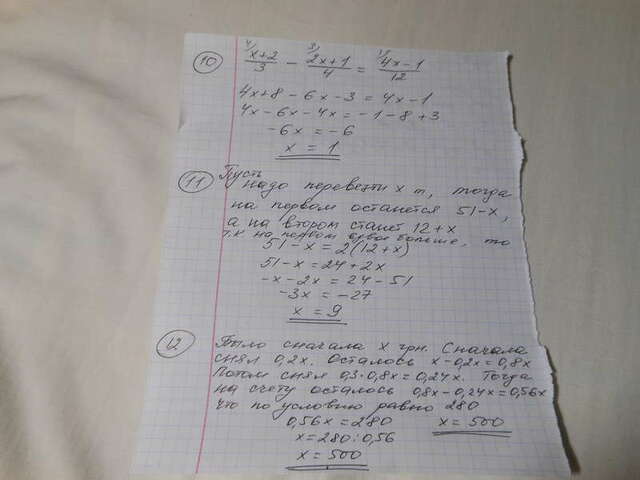 10 4/ x+2 / 3 − 3/ 2x+1 / 4 = 1/ 4x−1 / 12
4x+8 − 6x − 3 = 4x − 1
4x − 6x − 4x = −1 − 8 + 3
−6x = −6
x = 1
11 Пусть
надо перевезти x т, тогда
на первом останется 51−x,
а на втором станет 12+x
т.к на первом вдвое больше, то
51−x = 2(12+x)
51−x = 24+2x
−x−2x = 24−51
−3x = −27
x = 9
12 Было сначала x грн. Сначала
снял 0,2x. Осталось x−0,2x=0,8x
Потом снял 0,3·0,8x=0,24x. Тогда
на счету осталось 0,8x−0,24x=0,56x
что по условию равно 280
0,56x = 280 x = 500
x = 280:0,56
x = 500